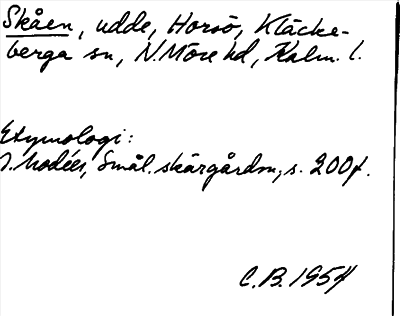 Skåen, udde, Horsö, Kläcke-
berga sn, N. Möre hd, Kalm. l.
Etymologi:
J. Modéer, Smål. skärgårdsn, s. 200f.
C.B. 1954